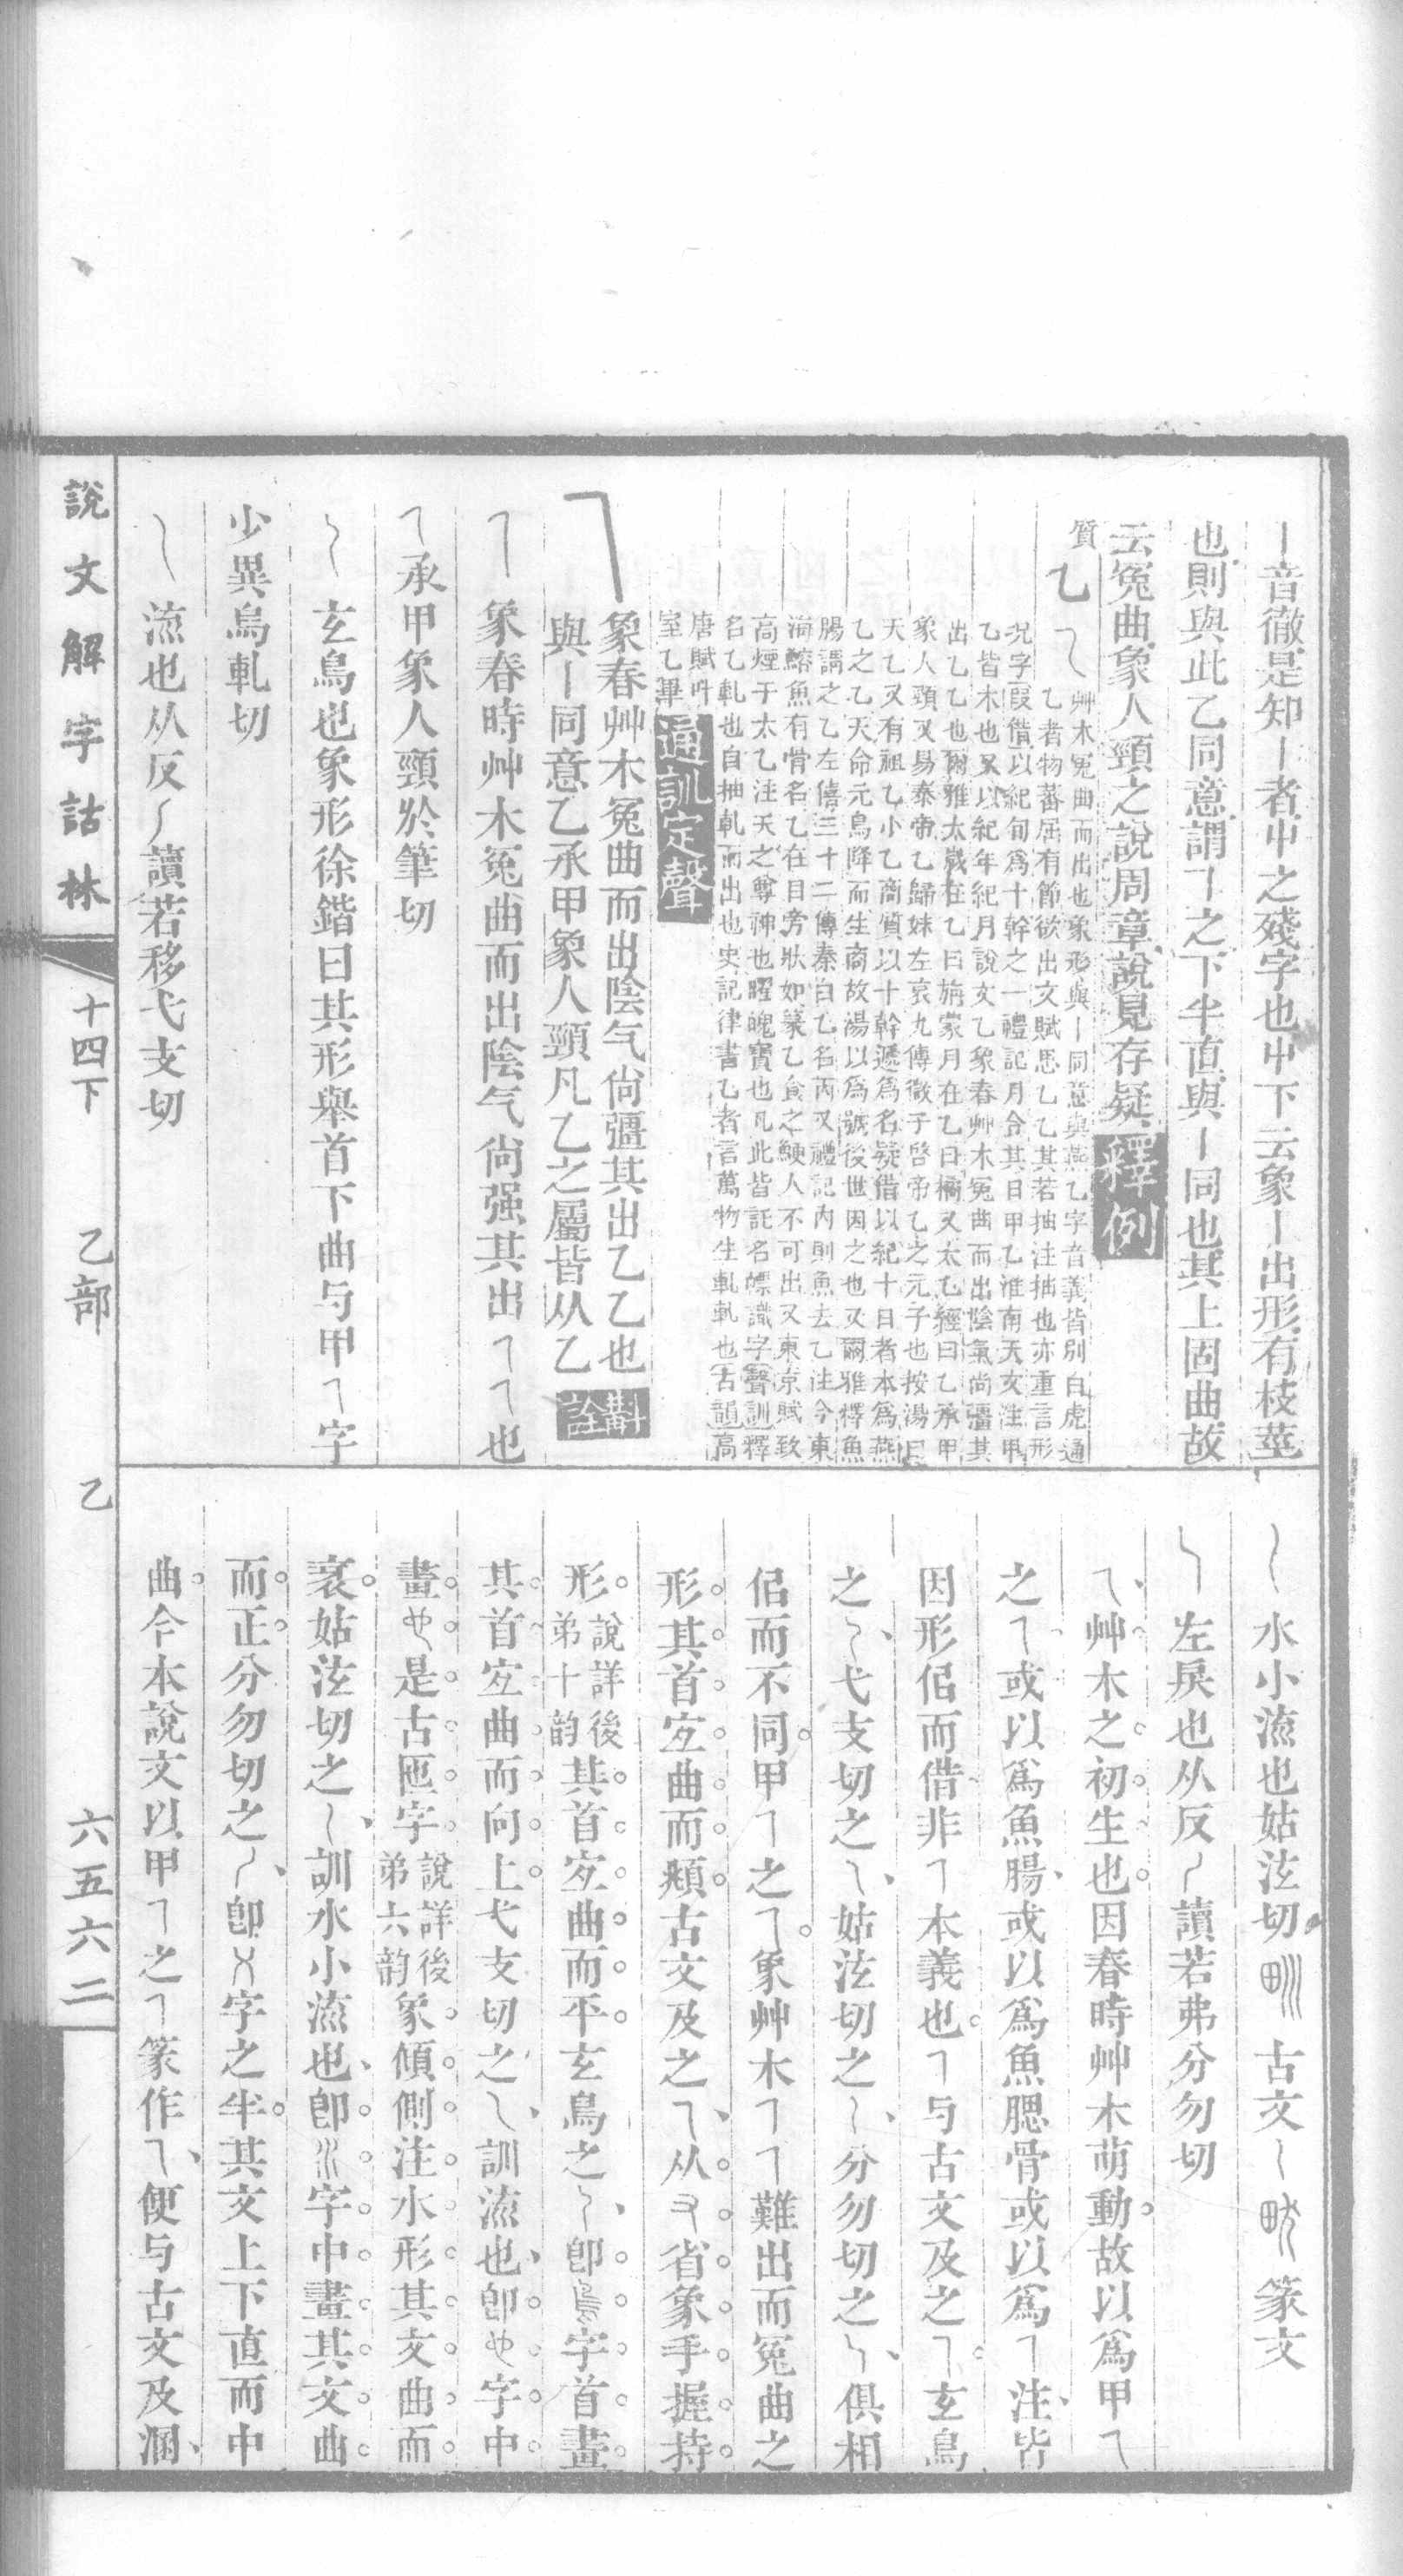 丨音徹是知丨者屮之殘字也屮下云象丨出形有枝莖
也則與此乙同意謂乁之下半直與丨同也其上固曲故
云冤曲象人頸之說周章說見存疑釋例
質
乙
艸木冤曲而出也象形與丨同意與燕乙字音義皆別白虎通
乙者物蕃屈有節欲出文賦思乙乙其若抽注抽也亦重言形
況字叚借以紀旬爲十幹之一禮記月令其日甲乙淮南天文注甲
乙皆木也又以紀年紀月說文乙象春艸木冤曲而出陰氣尚彊其
出乙乙也爾雅太歲在乙曰旃蒙月在乙曰橘又太乙經曰乙承甲
象人頸又易泰帝乙歸妹左哀九傳微子啓帝乙之元子也按湯曰
天乙又有祖乙小乙商質以十幹遞爲名疑借以紀十日者本爲燕
乙之乙天命元鳥降而生商故湯以爲號後世因之也又爾雅釋魚
腸謂之乙左僖三十二傳秦白乙名丙又禮記內則魚去乙注今東
海鰫魚有骨名乙在目旁狀如篆乙食之鯁人不可出又東京賦致
高煙于太乙注天之尊神也曜魄寶也凡此皆託名幖識字聲訓釋
名乙軋也自抽軋而出也史記律書乙者言萬物生軋軋也古韻高
唐賦
室乙畢
通訓定聲
象春艸木冤曲而出陰气尚彊其出乙乙也
與丨同意乙承甲象人頸凡乙之屬皆从乙
斠詮
象春時艸木冤曲而出陰气尚强其出也
承甲象人頸於筆切
玄鳥也象形徐鍇曰其形舉首下曲与甲字
少異烏軋切
㳅也从反讀若移弋支切
說文解字詁林
十四下
乙部
乙
六五六二
水小㳅也姑泫切古文篆文
左戾也从反讀若弗分勿切
艸木之初生也因春時艸木萌動故以爲甲
之或以爲魚腸或以爲魚腮骨或以爲注皆
因形佀而借非本義也与古文及之玄鳥
之弋支切之姑泫切之分勿切之俱相
佀而不同甲之象艸木難出而冤曲之
形其首宐曲而頫古文及之从省象手握持
形說詳後弟十韵其首宐曲而平玄鳥之卽字首畫
其首宐曲而向上弋支切之訓㳅也卽字中
畫是古匜字說詳後弟六韵象傾側注水形其文曲而
衺姑泫切之訓水小㳅也卽字中畫其文曲
而正分勿切之卽字之半其文上下直而中
曲今本說文以甲之篆作便与古文及溷